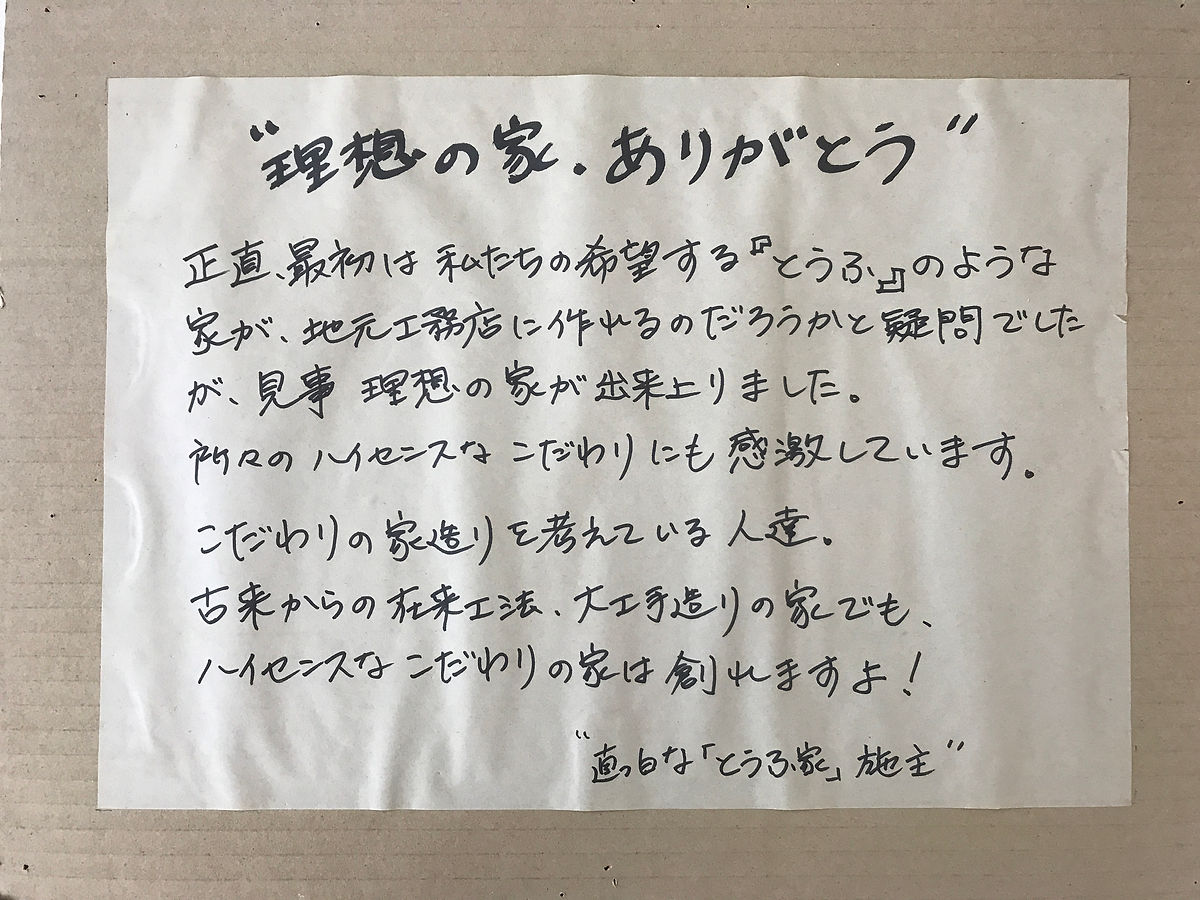 "理想の家.ありがとう"
正直、最初は 私たちの希望する『とうふ』のような
家が、地元工務店に作れるのだろうかと疑問でした
が、見事 理想の家が出来上りました。
所々のハイセンスな こだわりにも 感激しています。
こだわりの家造りを考えている人達。
古来からの在来工法、大工手造りの家でも、
ハイセンスなこだわりの家は創れますよ!
"直っ白な「とうふ家」施主"